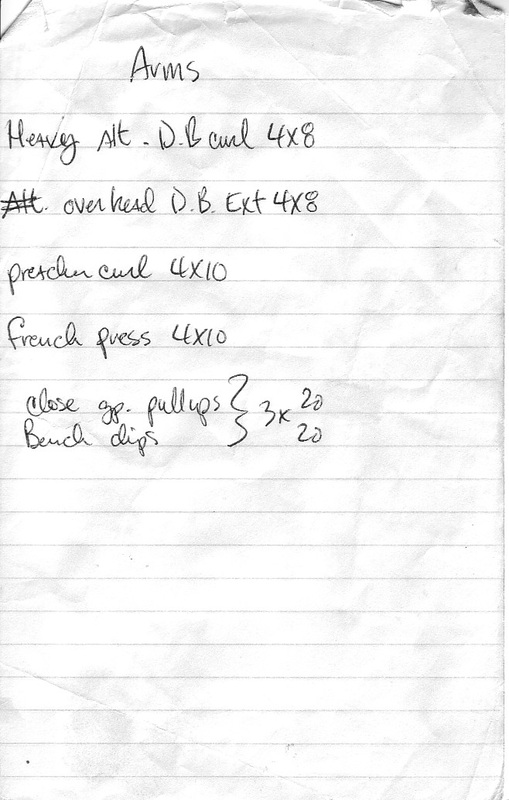 Arms
Heavy Alt. D.B curl 4x8
Alt. overhead D.B. Ext 4x8
preacher curl 4x10
french press 4x10
close gp. pullups } 3x 20
Bench dips } 20